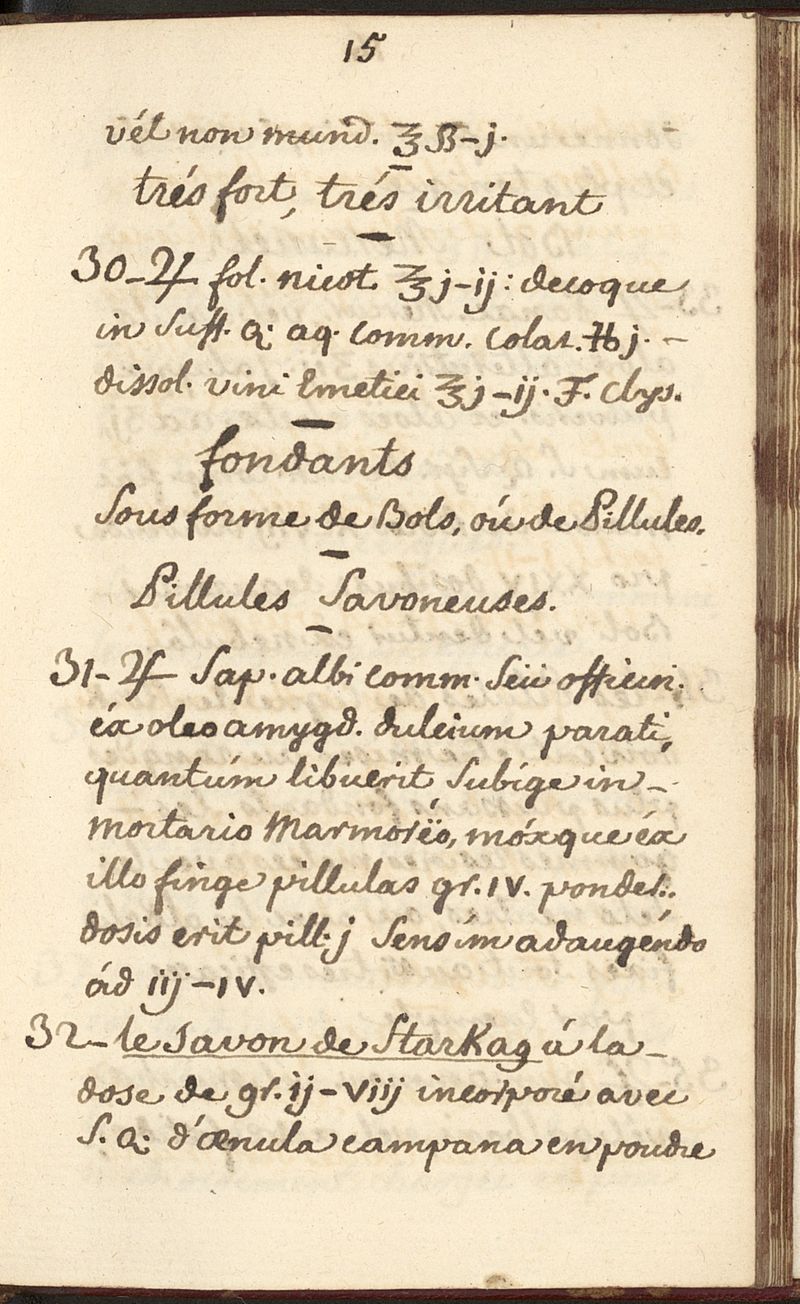 15
vél non mund. ℥ ß-j.
trés fort, trés irritant
30-♃ fol. nicot ℥j-ij: decoque
in Suff. Q: aq. comm. Colat. ℔j. -
dissol. vini Emetici ℥j-ij. F. Clys.
fondants
Sous forme de Bols, oú de Pillules.
Pillules Savoneuses.
31-♃ Sap. albi comm. Seü officin.
éx oleo amygd. dulcium parati,
quantúm libuerit Subíge in-
mortario Marmoréo, móxque éx
illo finge pillulas gr. IV. ponder.
dosis erit pill. j Sensím adaugéndo
ád iij-IV.
32-le Savon de StarKag á la-
dose de gr. ij-Viij incorporé avec
S. Q: d'œnula campana en poudre